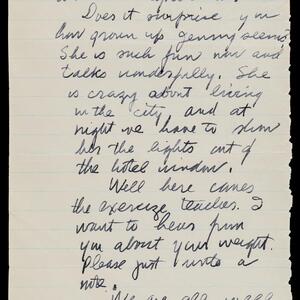 Does it surprise you
how grown up Jenny seems.
She is such fun now and
talks wonderfully. She
is crazy about living
in the city and at
night we have to show
her the lights out of
the hotel window.
Well here comes
the exercize teacher. I
want to hear from
you about your weight.
Please just write a
note.
We are all well